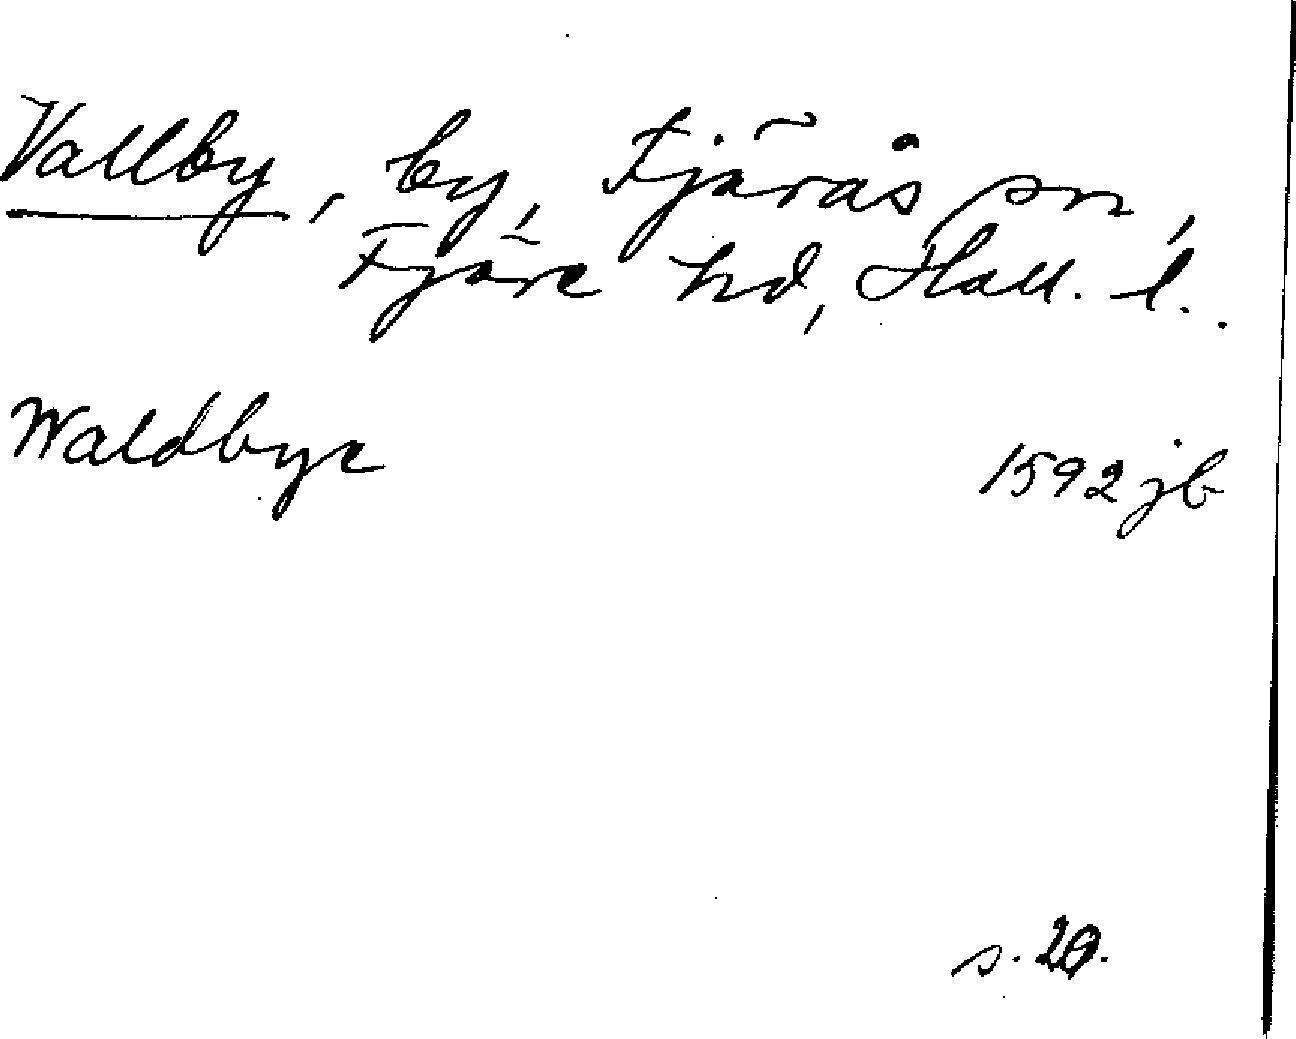 Vallby, by, Fjärås sn,
Fjäre hd, Hall. l.
Waldbye 1592 jb
s. 20.